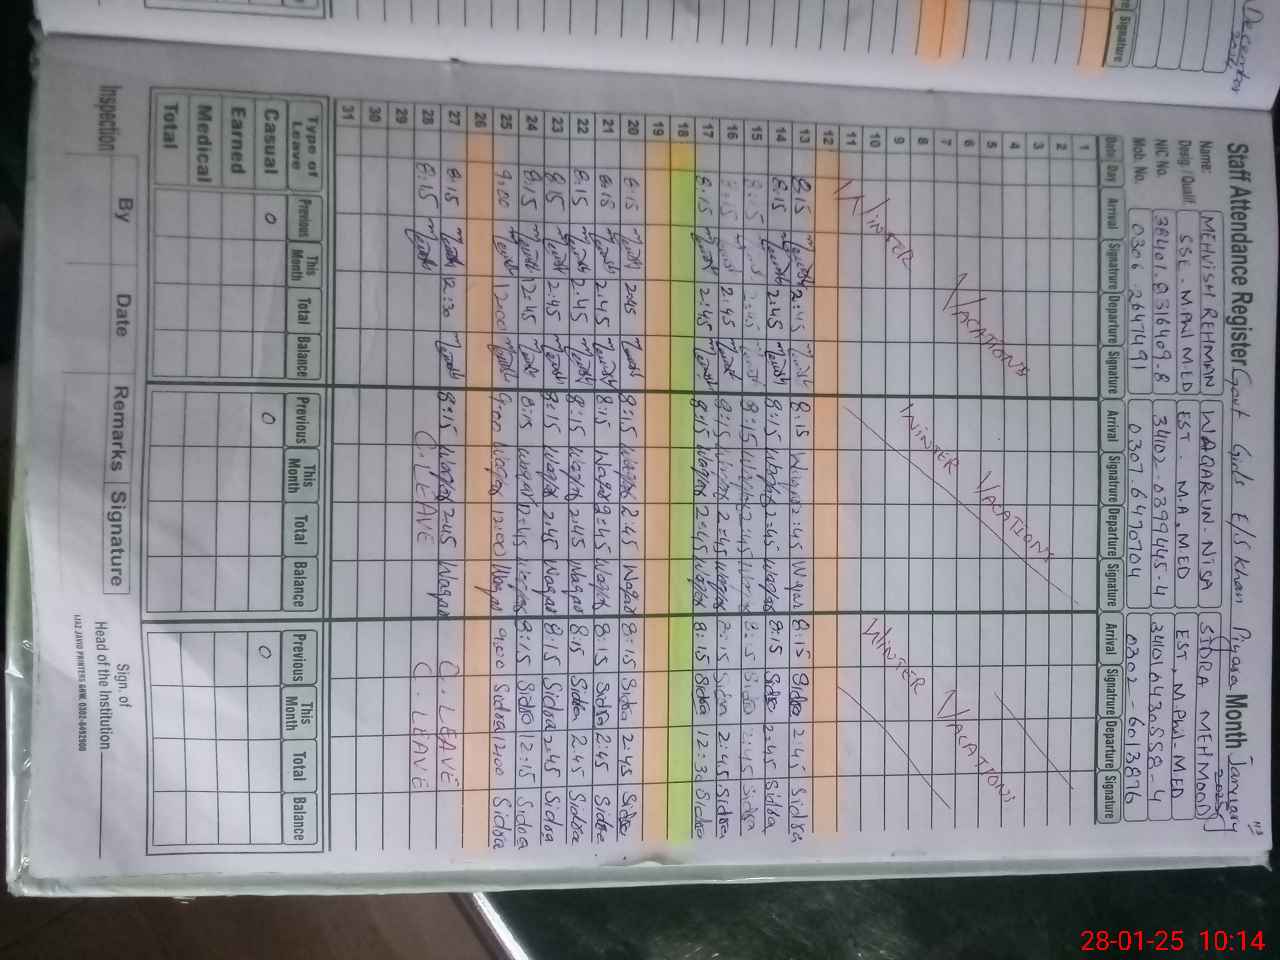 December
Signature
Staff Attendance Register Govt Girls E/S Khan Pyara Month January 2025
Name: MEHVISH REHMAN WAQAR-UN-NISA SIDRA MEHMOOD
Desig./Qualif. SSE. M.PHIL M.ED EST. M.A, M.ED EST, M.Phil, M.ED
NIC No. 38401.8316409.8 34102-0399445-4 34101-0430558-4
Mob. No. 0306.2647491 0307.6470704 0302-6013876
Date/Day Arrival Signature Departure Signature Arrival Signature Departure Signature Arrival Signature Departure Signature
1
2
3
4
5
6
7
8
9
10
11
WINTER VACATIONS WINTER VACATIONS WINTER VACATIONS
12
13 8:15 2:45 8:15 Waqar 2:45 Waqar 8:15 Sidra 2:45 Sidra
14 8:15 2:45 8:15 Waqar 2:45 Waqar 8:15 Sidra 2:45 Sidra
15 8:15 2:45 8:15 Waqar 2:45 Waqar 8:15 Sidra 2:45 Sidra
16 8:15 2:45 8:15 Waqar 2:45 Waqar 8:15 Sidra 2:45 Sidra
17 8:15 2:45 8:15 Waqar 2:45 Waqar 8:15 Sidra 12:30 Sidra
18
19
20 8:15 2:45 8:15 Waqar 2:45 Waqar 8:15 Sidra 2:45 Sidra
21 8:15 2:45 8:15 Waqar 2:45 Waqar 8:15 Sidra 2:45 Sidra
22 8:15 2:45 8:15 Waqar 2:45 Waqar 8:15 Sidra 2:45 Sidra
23 8:15 2:45 8:15 Waqar 2:45 Waqar 8:15 Sidra 2:45 Sidra
24 8:15 12:45 8:15 Waqar 12:45 Waqar 8:15 Sidra 12:15 Sidra
25 9:00 12:00 9:00 Waqar 12:00 Waqar 9:00 Sidra 12:00 Sidra
26
27 8:15 12:30 8:15 Waqar 2:45 Waqar C. LEAVE
28 8:15 C. LEAVE C. LEAVE
29
30
31
Type of Leave Previous This Month Total Balance Previous This Month Total Balance Previous This Month Total Balance
Casual 0 0 0
Earned
Medical
Total
Inspection By Date Remarks Signature Sign. of Head of the Institution
28-01-25 10:14